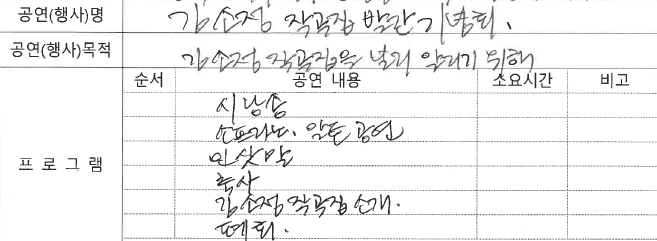 공연(행사)명 김소정 작곡집 발간기념회.
공연(행사)목적 김소정 작곡집을 널리 알리기 위해
순서 공연 내용 소요시간 비고
시낭송
소프라노. 알토 공연
인삿말
프로그램 축사
김소정 작곡집 소개.
폐회.